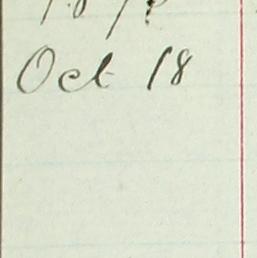 Oct 18